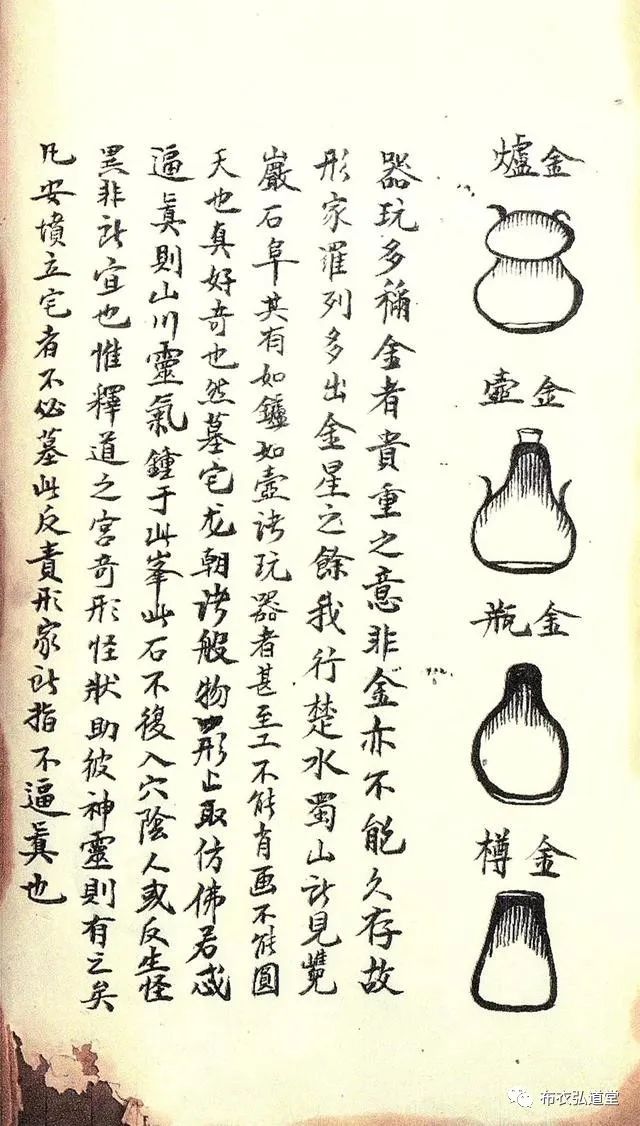 金爐
金壺
金瓶
金樽
器玩多稱金者貴重之意非金亦不能久存故
形家羅列多出金星之餘我行楚水蜀山所見
巖石阜其有如鑪如壺諸玩器者甚至工不能肖画不能圓
天也真好奇也然墓宅龙朝諸般物形止取仿佛若
逼眞則山川靈氣鍾于此峯此石不復入穴陰人或反生怪
異非所宜也惟釋道之宮奇形怪狀助彼神靈則有之矣
凡安墳立宅者不必墓此反責形家所指不逼眞也
布衣弘道堂